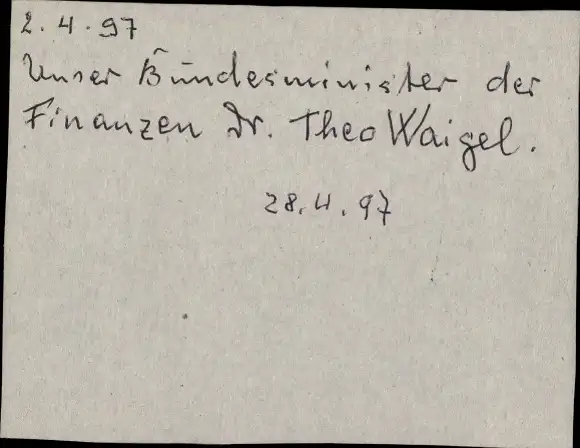 2.4.97
Unser Bundesminister der
Finanzen Dr. Theo Waigel.
28.4.97